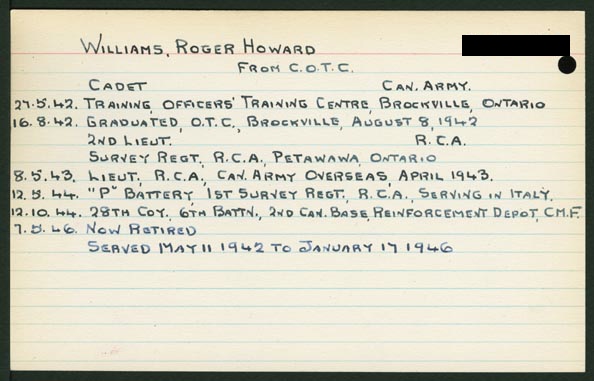 WILLIAMS, ROGER HOWARD
FROM C.O.T.C.
CADET CAN. ARMY.
27.5.42. TRAINING, OFFICERS' TRAINING CENTRE, BROCKVILLE, ONTARIO
16.8.42. GRADUATED, O.T.C., BROCKVILLE, AUGUST 8, 1942
2ND LIEUT. R.C.A.
SURVEY REGT, R.C.A., PETAWAWA, ONTARIO
8.5.43. LIEUT, R.C.A., CAN. ARMY OVERSEAS, APRIL 1943.
12.5.44. "P" BATTERY, 1ST SURVEY REGT., R.C.A., SERVING IN ITALY.
12.10.44. 28TH COY, 6TH BATTN., 2ND CAN. BASE REINFORCEMENT DEPOT, C.M.F.
7.5.46. NOW RETIRED
SERVED MAY 11 1942 TO JANUARY 17 1946